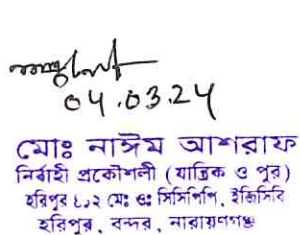 04.03.24
মোঃ নাঈম আশরাফ
নির্বাহী প্রকৌশলী (যান্ত্রিক ও পুর)
হরিপুর ৪১২ মেঃ ওঃ সিসিপিপি, ইজিসিবি
হরিপুর, বন্দর, নারায়ণগঞ্জ